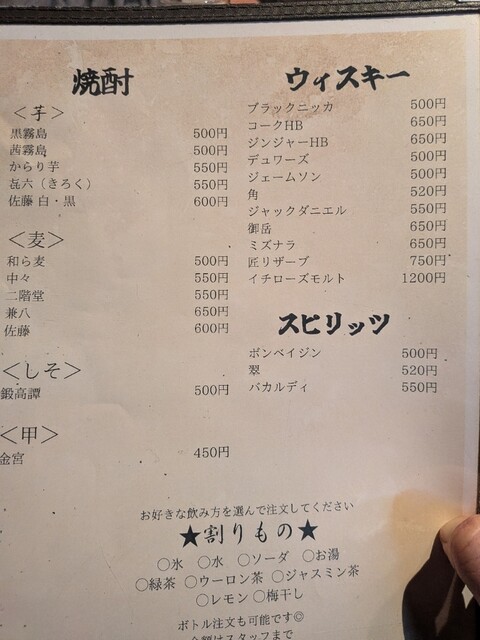 焼酎
＜芋＞
黒霧島 500円
茜霧島 500円
からり芋 550円
㐂六（きろく） 550円
佐藤 白・黒 600円
＜麦＞
和ら麦 500円
中々 550円
二階堂 550円
兼八 650円
佐藤 600円
＜しそ＞
鍛高譚 500円
＜甲＞
金宮 450円
ウィスキー
ブラックニッカ 500円
コークHB 650円
ジンジャーHB 650円
デュワーズ 500円
ジェームソン 500円
角 520円
ジャックダニエル 550円
御岳 650円
ミズナラ 650円
匠リザーブ 750円
イチローズモルト 1200円
スピリッツ
ボンベイジン 500円
翠 520円
バカルディ 550円
お好きな飲み方を選んで注文してください
★割りもの★
○氷 ○水 ○ソーダ ○お湯
○緑茶 ○ウーロン茶 ○ジャスミン茶
○レモン ○梅干し
ボトル注文も可能です◎
金額はスタッフまで